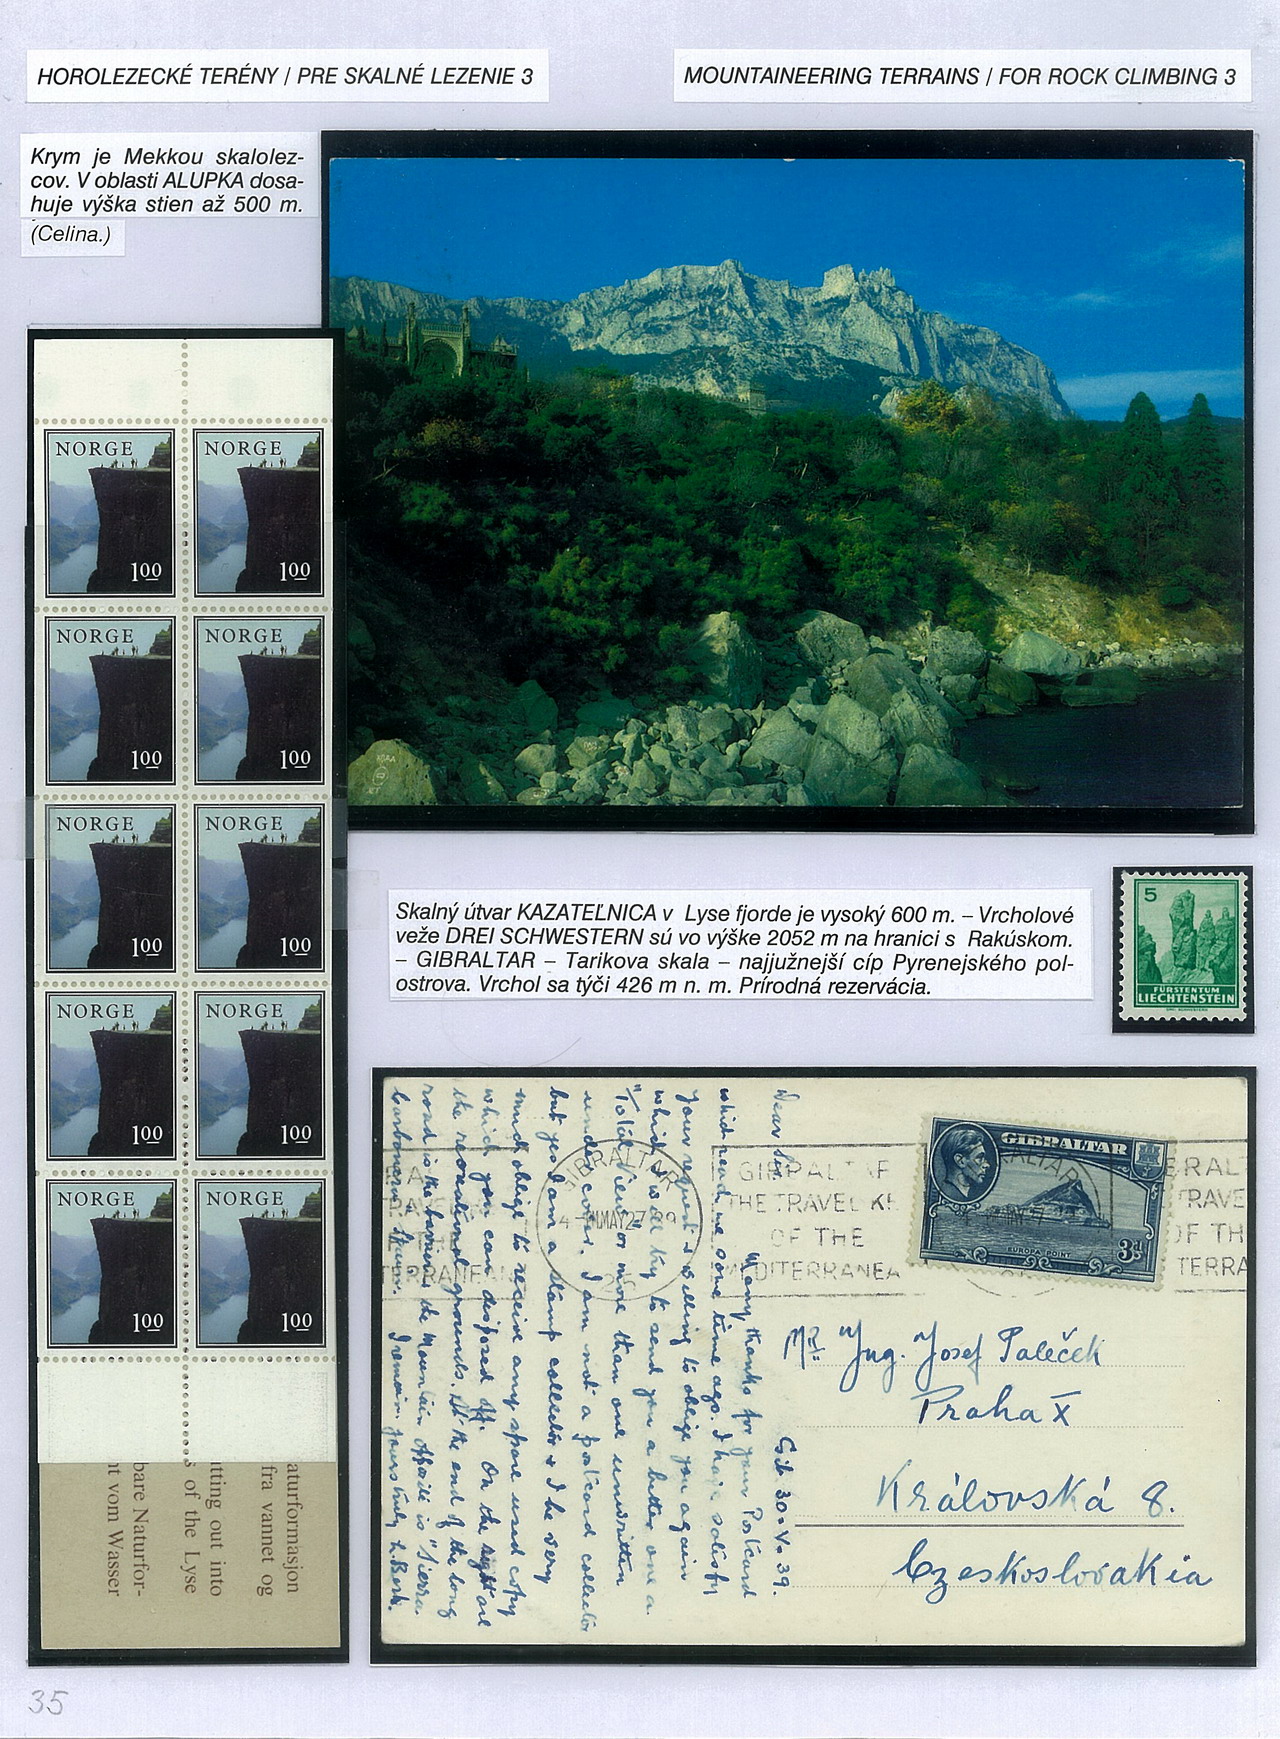 HOROLEZECKÉ TERÉNY / PRE SKALNÉ LEZENIE 3
MOUNTAINEERING TERRAINS / FOR ROCK CLIMBING 3
Krym je Mekkou skalolez-
cov. V oblasti ALUPKA dosa-
huje výška stien až 500 m.
(Celina.)
NORGE
1.00
NORGE
1.00
NORGE
1.00
NORGE
1.00
NORGE
1.00
NORGE
1.00
NORGE
1.00
NORGE
1.00
NORGE
1.00
NORGE
1.00
aturformasjon
fra vannet og
tting out into
s of the Lyse
bare Naturfor-
nt vom Wasser
Skalný útvar KAZATEĽNICA v Lyse fjorde je vysoký 600 m. – Vrcholové
veže DREI SCHWESTERN sú vo výške 2052 m na hranici s Rakúskom.
– GIBRALTAR – Tarikova skala – najjužnejší cíp Pyrenejského pol-
ostrova. Vrchol sa týči 426 m n. m. Prírodná rezervácia.
5
FÜRSTENTUM
LIECHTENSTEIN
Gib. 30.V.39.
Dear Sir,
Many thanks for your Postcard
which reach me some time ago. I have satisfy
your request & willing to oblige you again
which I will try to send you a better one a
"Total View" or more than one unwritten
under cover. I am not a postcard collector
but yes I am a stamp collector & I be very
much oblige to receive any spare used copy
which you can disposed off. On the right are
the recreational grounds. At the end of the long
road is the formous the Mountain opposite is "Sierra
Carbonera" Spain. I remain yours truly
GIBRALTAR
MAY 27 39
GIBRALTAR
THE TRAVEL KEY
OF THE
MEDITERRANEAN
GIBRALTAR
EUROPA POINT
3d
Mr. Ing. Josef Paleček
Praha X
Královská 8.
Czeskoslovakia
35